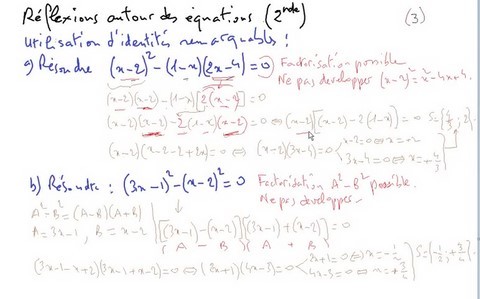 Réflexions autour des équations (2nde) (3)
Utilisation d'identités remarquables :
a) Résoudre (x-2)² - (1-x)(2x-4) = 0 Factorisation possible
Ne pas développer (x-2)² = x² - 4x + 4.
(x-2)(x-2) - (1-x)[2(x-2)] = 0
(x-2)(x-2) - 2(1-x)(x-2) = 0 ⇔ (x-2)[(x-2) - 2(1-x)] = 0 S={4/3 ; 2}
(x-2)(x-2-2+2x) = 0 ⇔ (x-2)(3x-4) = 0 x-2=0 ⇔ x=+2
3x-4=0 ⇔ x=+4/3
b) Résoudre : (3x-1)² - (x-2)² = 0 Factorisation A²-B² possible.
Ne pas développer.
A²-B² = (A-B)(A+B)
A = 3x-1, B = x-2 [(3x-1) - (x-2)][(3x-1) + (x-2)] = 0
( A - B )( A + B )
(3x-1-x+2)(3x-1+x-2) = 0 ⇔ (2x+1)(4x-3) = 0 2x+1=0 ⇔ x=-1/2 S={-1/2 ; +3/4}
4x-3=0 ⇔ x=+3/4